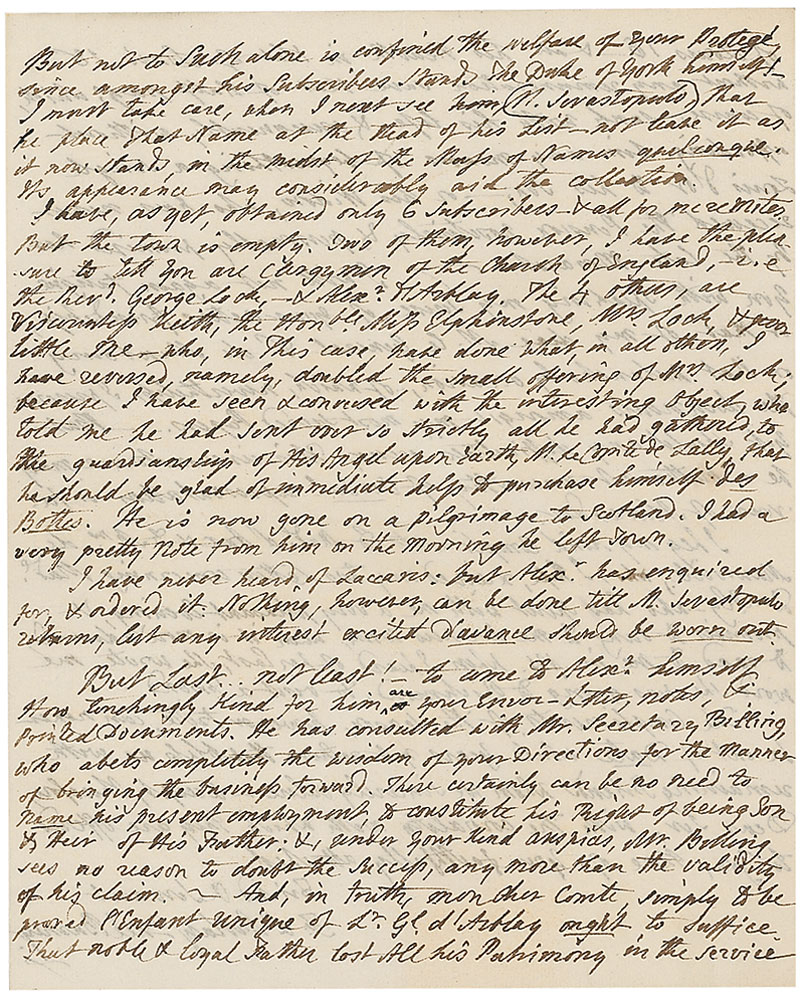 But not to Such alone is confined the welfare of your Protegé,
since amongst his Subscribers Stands The Duke of York himself!—
I must take care, when I next see him (M. Sevastopulo) that
he place That Name at the Head of his List—not leave it as
it now stands, in the midst of the Mass of Names quelconque.
Its appearance may considerably aid the collection.
I have, as yet, obtained only 6 Subscribers—& all for mere Mites.
But the town is empty. Two of them, however, I have the plea-
sure to tell you are Clergymen of the Church of England,—i.e
the Revd. George Lock,—& Alexr. d'Arblay. The 4 others, are
Viscountess Keith, the Honble Miss Elphinstone, Mrs Lock, & poor
little me—who, in This case, have done what, in all others, I
have reversed, namely, doubled the small offering of Mrs. Lock;
because I have seen & conversed with the interesting Object, who
told me he had sent over so strictly all he had gathered, to
the guardianship of His Angel upon Earth, M. Le Comte de Lally, that
he should be glad of immediate help to purchase himself des
Bottes. He is now gone on a Pilgrimage to Scotland. I had a
very pretty Note from him on the Morning he left Town.
I have never heard of Lascaris: but Alexr. has enquired
for, & ordered it. Nothing, however, can be done till M. Sevastopulo
returns, lest any interest excited d'avance should be worn out.
But Last... not least!—to come to Alexr. himself
How touchingly Kind for him are your Envoi—Letter, notes, &
Printed Documents. He has consulted with Mr. Secretary Billing,
who abets completely the wisdom of your Directions for the manner
of bringing the business forward. There certainly can be no need to
name his present employment, to constitute his Right of being Son
& Heir of His Father: &, under your Kind auspices, Mr. Billing
sees no reason to doubt the Success, any more than the validity
of his claim. — And, in truth, mon cher Comte, simply to be
proved l'Enfant unique of Lt. Gl. d'Arblay ought to suffice
That noble & loyal Father lost All his Patrimony in the service